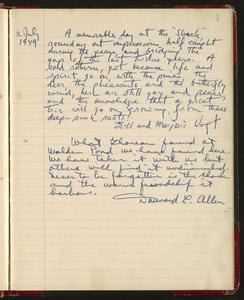 2 July
1949
A memorable day at the "Shack"
rounding out impressions half caught
during the years and bridging the
gaps of the last twelve years. A
bold return, yet became and
spirit go on with the pines, the
deer, the pheasants and the butterfly
weed, here are still joy and peace
and the knowledge that a great
tree will go on growing from these
deep-sunk roots.
Bill and Marjorie Vogt
What Thoreau found at
Walden Pond we have found here.
We have taken it with us but
others will find it undiminished.
Never to be forgotten is the shack
and the warm friendship it
harbors.
Durward L. Allen